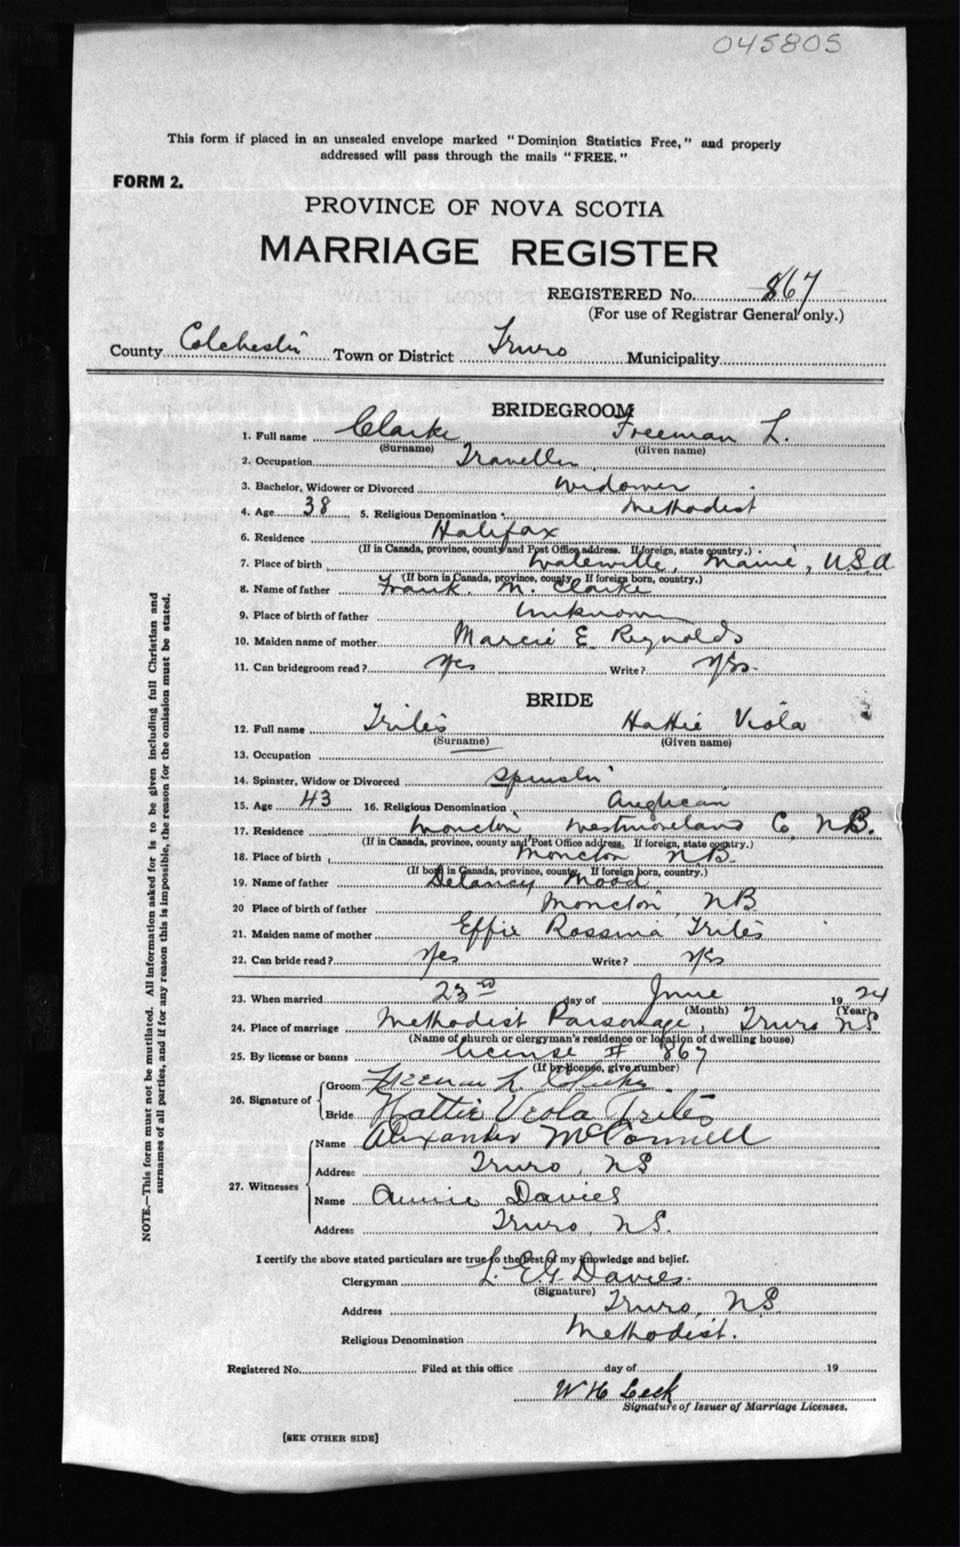 045805
This form if placed in an unsealed envelope marked "Dominion Statistics Free," and properly
addressed will pass through the mails "FREE."
FORM 2.
PROVINCE OF NOVA SCOTIA
MARRIAGE REGISTER
REGISTERED No. 867
(For use of Registrar General only.)
County Colchester Town or District Truro Municipality
BRIDEGROOM
1. Full name Clarke Freeman L.
(Surname) (Given name)
2. Occupation Traveller
3. Bachelor, Widower or Divorced Widower
4. Age 38 5. Religious Denomination Methodist
6. Residence Halifax
(If in Canada, province, county and Post Office address. If foreign, state country.)
7. Place of birth Waterville, Maine, U.S.A
(If born in Canada, province, county. If foreign born, country.)
8. Name of father Frank. M. Clarke
9. Place of birth of father Unknown
10. Maiden name of mother Marcie E. Reynolds
11. Can bridegroom read? Yes Write? Yes
BRIDE
12. Full name Trites Hattie Viola
(Surname) (Given name)
13. Occupation
14. Spinster, Widow or Divorced Spinster
15. Age 43 16. Religious Denomination Anglican
17. Residence Moncton Westmoreland Co, N.B.
(If in Canada, province, county and Post Office address. If foreign, state country.)
18. Place of birth Moncton N.B.
(If born in Canada, province, county. If foreign born, country.)
19. Name of father Delancy Wood
20 Place of birth of father Moncton, NB
21. Maiden name of mother Effie Rossina Trites
22. Can bride read? Yes Write? Yes
23. When married 23rd day of June 1924
(Month) (Year)
24. Place of marriage Methodist Parsonage, Truro NS
(Name of church or clergyman's residence or location of dwelling house)
25. By license or banns license # 867
(If by license, give number)
26. Signature of Groom Freeman L. Clarke
Bride Hattie Viola Trites
27. Witnesses Name Alexander McConnell
Address Truro, NS
Name Annie Davies
Address Truro, NS.
I certify the above stated particulars are true to the best of my knowledge and belief.
Clergyman L. E. G. Davies.
(Signature)
Address Truro, NS
Religious Denomination Methodist.
Registered No. Filed at this office day of 19
W H Leck
Signature of Issuer of Marriage Licenses.
[SEE OTHER SIDE]
NOTE.—This form must not be mutilated. All information asked for is to be given including full Christian and
surnames of all parties, and if for any reason this is impossible, the reason for the omission must be stated.